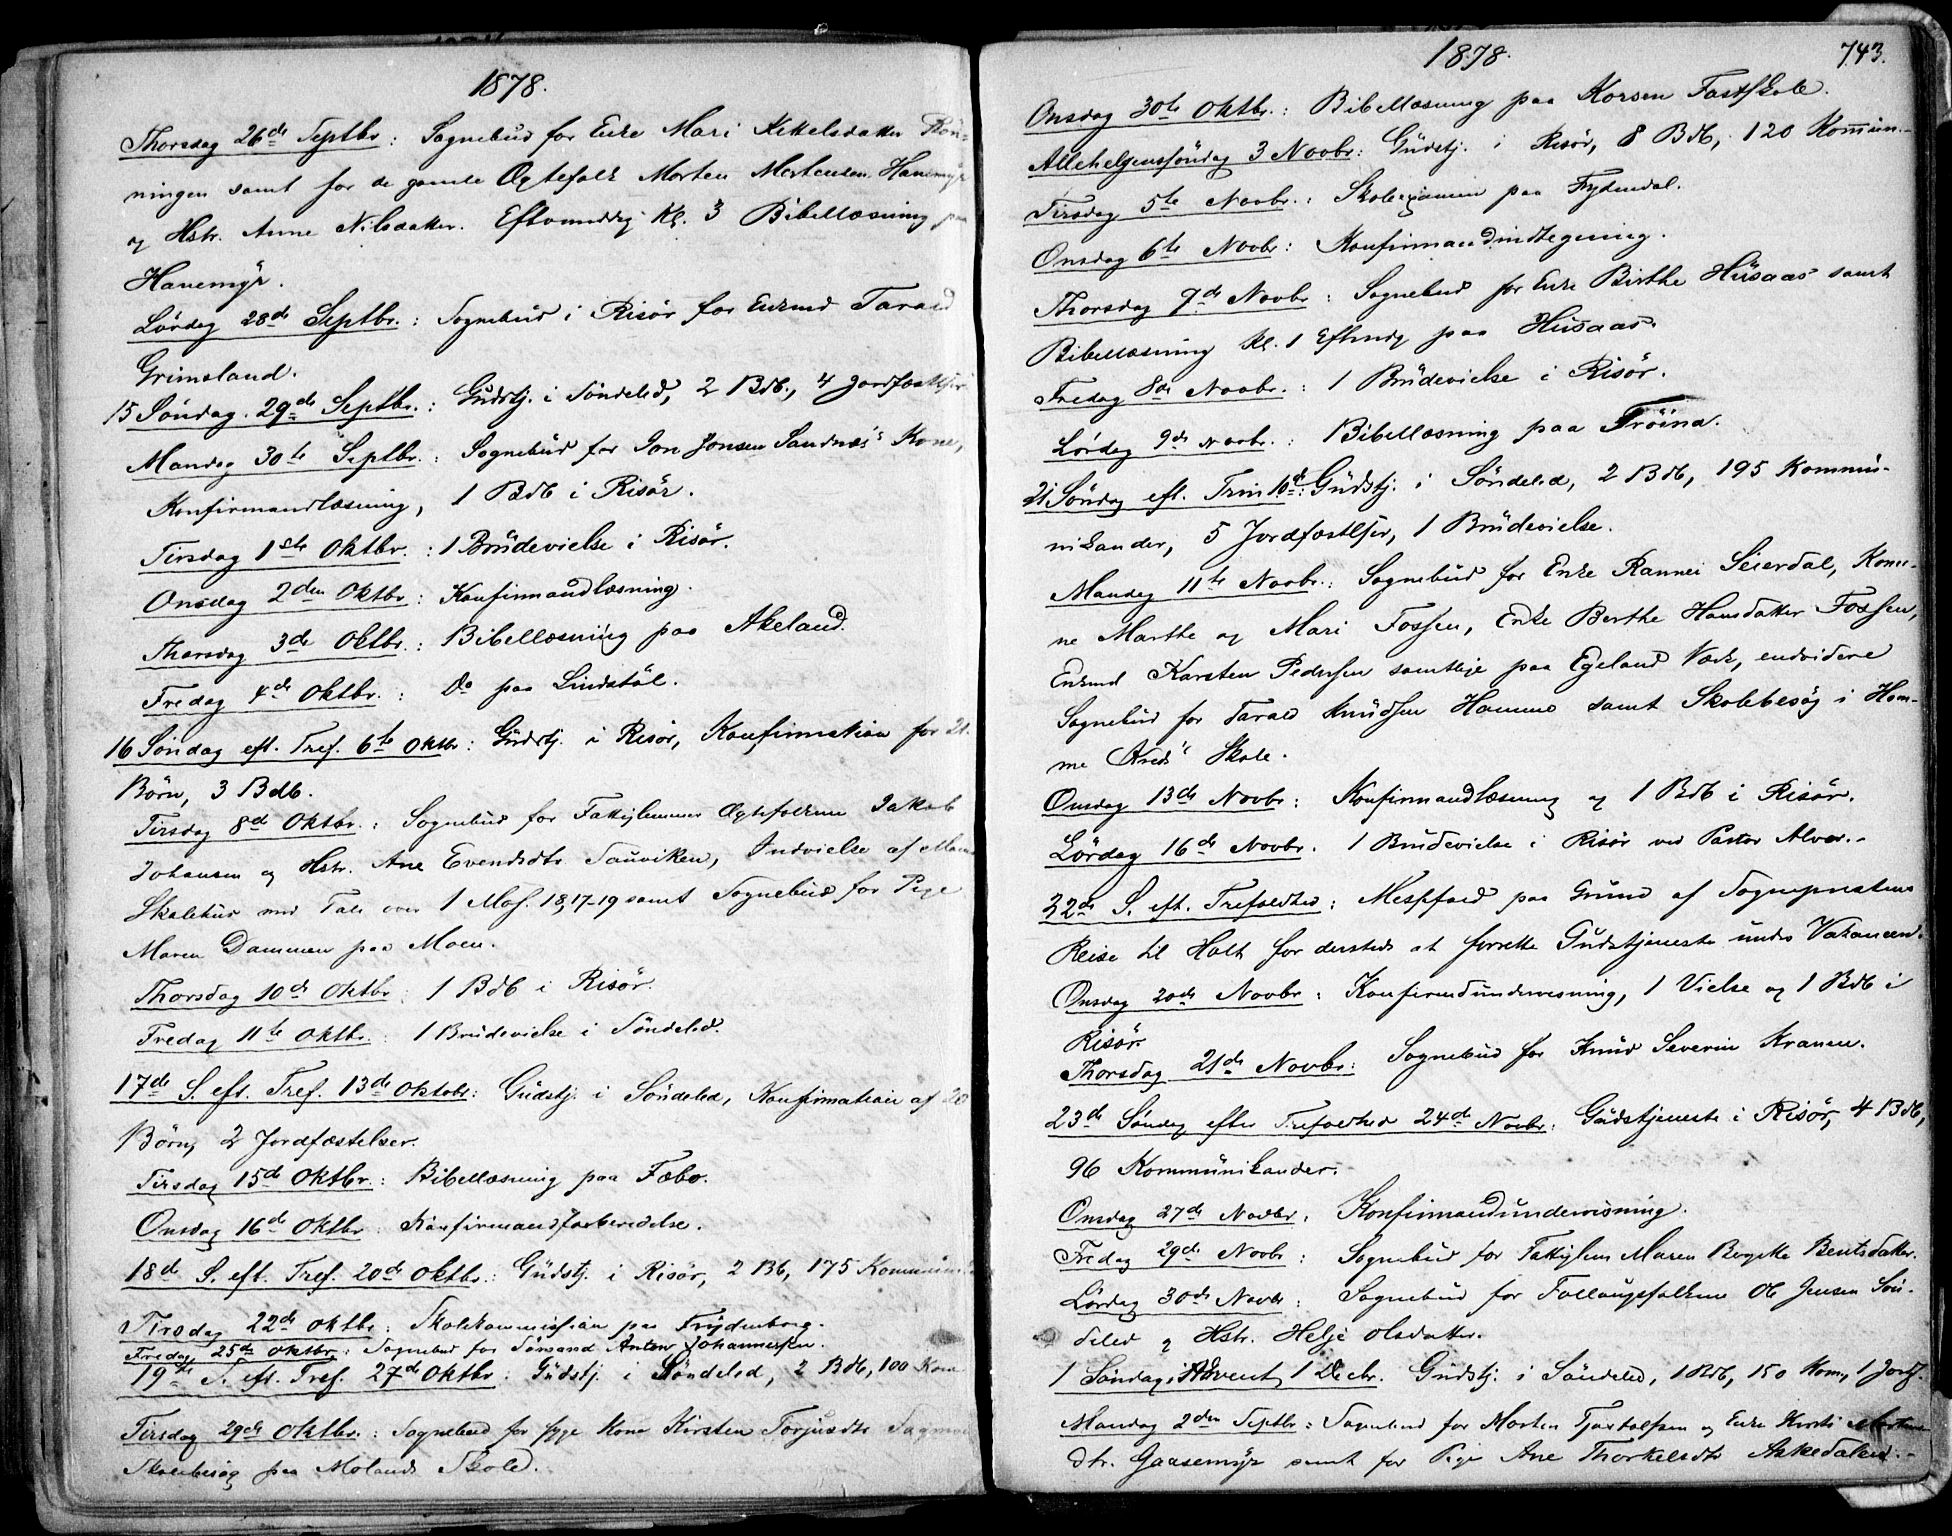 1878.
Thorsdag 26de Septbr: Sognebud for Enke Mari Kittelsdatter Røn-
ningen samt for de gamle Ægtefolk Morten Mortensen Hanemyr
og Hstr. Anne Nilsdatter. Eftermiddg Kl. 3 Bibellæsning paa
Hanemyr.
Lördag 28de Septbr.: Sognebud i Risör for Enkmd Tarald
Grimsland.
15 Söndag. 29de Septbr.: Gudstj. i Söndeled, 2 Bdb., 4 Jordfæstlser
Mandag 30te Septbr.: Sognebud for Jon Jonsen Sandnæs's Kone,
Konfirmandlæsning, 1 Bdb i Risör.
Tirsdag 1ste Oktbr.: 1 Brudevielse i Risör.
Onsdag 2den Oktbr: Konfirmandlæsning.
Thorsdag 3de Oktbr.: Bibellæsning paa Akeland.
Fredag 4de Oktbr.: Do paa Lindstöl.
16 Söndag eft. Tref. 6te Oktbr: Gudstj. i Risör, Konfirmation for 21
Börn, 3 Bdb.
Tirsdag 8de Oktbr.: Sognebud for Fattiglemmer Ægtefolkene Jakob
Johansen og Hstr. Ane Evendsdtr Sauviken, Indvielse af Moens
Skolehus med Tale over 1 Mos. 18,17-19 samt Sognebud for Pige
Maren Dammen paa Moen.
Thorsdag 10de Oktbr: 1 Bdb i Risör.
Fredag 11te Oktbr.: 1 Brudevielse i Söndeled.
17de S. eft. Tref. 13de Oktobr: Gudstj. i Söndeled, Konfirmation af 20
Börn, 2 Jordfæstelser.
Tirsdag 15de Oktbr.: Bibellæsning paa Fæbo.
Onsdag 16de Oktbr: Konfirmandforberedelse.
18de S. eft. Tref. 20de Oktbr.: Gudstj. i Risör, 2 Bb, 175 Kommuni
Tirsdag 22de Oktbr: Skolekommission paa Frydenborg.
Fredag 25de Oktbr: Sognebud for Sömand Anton Johannesen.
19de S. eft. Tref. 27de Oktbr: Gudstj. i Söndeled, 2 Bdb, 100 Kom
Tirsdag 29de Oktbr.: Sognebud for syge Kone Kirsten Torjusdtr
Skolebesög paa Molands Skole.
1878. 743.
Onsdag 30te Oktbr.: Bibellæsning paa Korsen Fastskole.
Allehelgenssöndag 3 Novbr: Gudstj. i Risör, 8 Bdb, 120 Kommun.-
Tirsdag 5te Novbr.: Skoleexamen paa Frydendal.
Onsdag 6te Novbr: Konfirmandindtegning.
Thorsdag 7de Novbr: Sognebud for Enke Birthe Husaas samt
Bibellæsning Kl. 1 Eftmdg paa Husaas.
Fredag 8de Novbr.: 1 Brudevielse i Risör.
Lördag 9de Novbr.: Bibellæsning paa Fröina.
21 Söndag eft. Trin 10de: Gudstj. i Söndeled, 2 Bdb, 195 Kommu-
nikander, 5 Jordfæstlser, 1 Brudevielse.
Mandag 11te Novbr.: Sognebud for Enke Rannei Seierdal, Koner-
ne Marthe og Mari Fossen, Enke Berthe Hansdatter Fossen,
Enkmd Karsten Pedersen samtlige paa Egeland Værk, endvidere
Sognebud for Tarald Knudsen Homme samt Skolebesög i Hom-
me Kreds' Skole.
Onsdag 13de Novbr: Konfirmandlæsning og 1 Bdb i Risör.
Lördag 16de Novbr. 1 Brudevielse i Risör ved Pastor Alver.-
22de S. eft. Trefoldhed: Messfald paa Grund af Sognepræstens
Reise til Holt for dersteds at forrette Gudstjeneste under Vakancen.
Onsdag 20de Novbr: Konfirmdundervisning, 1 Vielse og 1 Bdb i
Risör.
Thorsdag 21de Novbr: Sognebud for Knud Severin Kranen.
23de Söndag efter Trefoldhed 24de Novbr: Gudstjeneste i Risör, 4 Bdb,
96 Kommunikander.
Onsdag 27de Novbr. Konfirmandundervisning.
Fredag 29de Novbr: Sognebud for Fattiglem Maren Birgitte Bentsdatter.
Lördag 30de Novbr: Sognebud for Follaugsfolkene Ole Jensen Sön-
deled og Hstr. Helje Olsdatter.
1 Söndag i Advent, 1 Decbr. Gudstj. i Söndeled, 1 Bdb, 150 Kom, 1 Jordf.
Mandag 2den Septbr: Sognebud for Morten Tjostolfsen og Enke Kirsti Mortens
dtr. Gaasemyr samt for Pige Ane Thorkelsdtr Askedalen.-